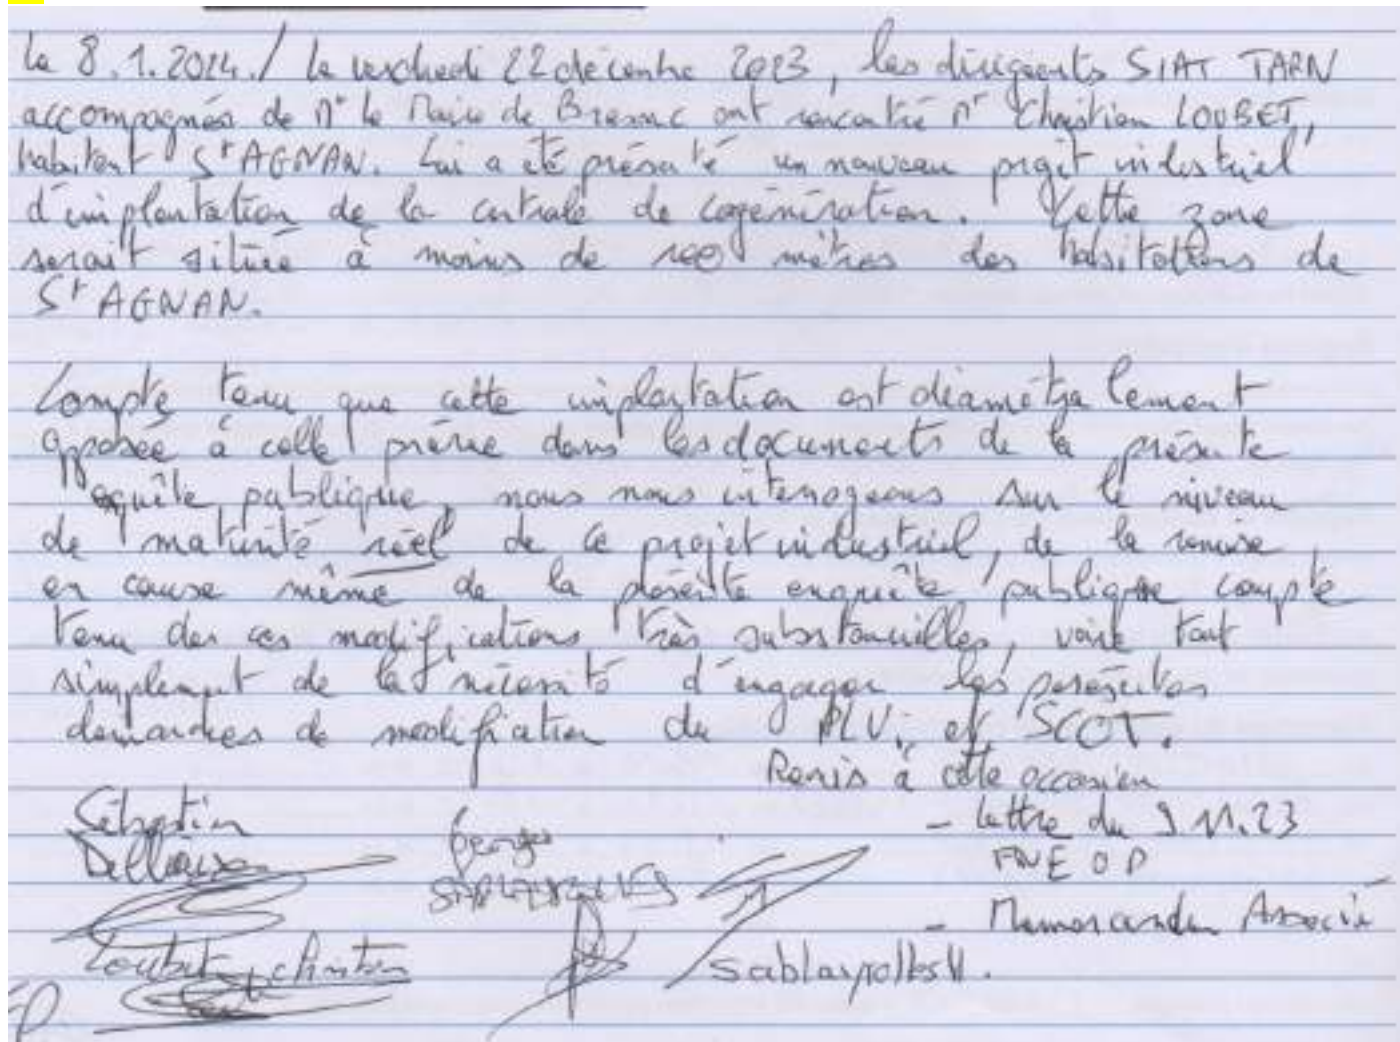 Le 8.1.2024. / Le vendredi 22 décembre 2023, les dirigeants SIAT TARN
accompagnés de Mr le Maire de Brassac ont rencontré Mr Christian LOUBET,
habitant St AGNAN. Lui a été présenté un nouveau projet industriel
d'implantation de la centrale de cogénération. Cette zone
serait située à moins de 100 mètres des habitations de
St AGNAN.
Compte tenu que cette implantation est diamétralement
opposée à celle prévue dans les documents de la présente
enquête publique, nous nous interrogeons sur le niveau
de maturité réel de ce projet industriel, de la remise
en cause même de la présente enquête publique compte
tenu des ces modifications très substancielles, voire tout
simplement de la nécessité d'engager les présentes
demandes de modification du PLUi et SCOT.
Remis à cette occasion
- lettre du 9 11.23
FNE OP
- Memorandum Associé
Sébastien
Georges
Loubet Christian